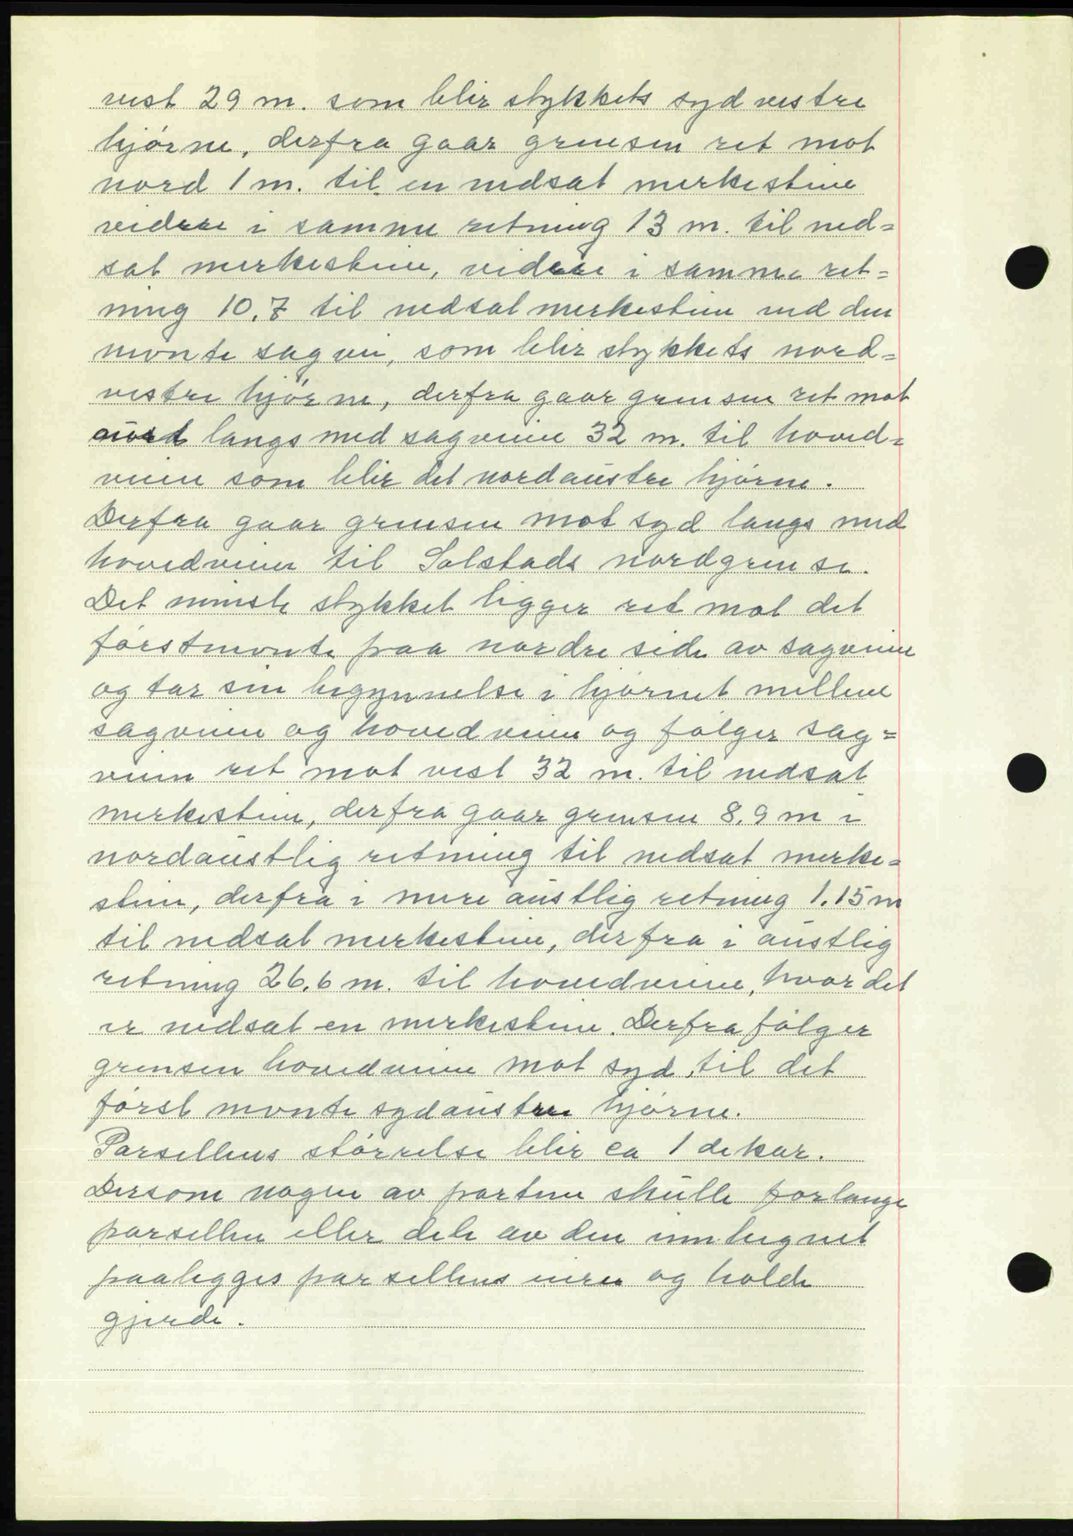 vest 29 m. som blir stykkets sydvestre
hjørne, derfra gaar grensen ret mot
nord 1 m. til en nedsat merkestein
videre i samme retning 13 m. til ned=
sat merkestein, videre i samme ret=
ning 10.7 til nedsat merkestein ved den
nevnte sagvei, som blir stykkets nord=
vestre hjørne, derfra gaar grensen ret mot
langs med sagveien 32 m. til hoved=
veien som blir det nordaustre hjørne.
Derfra gaar grensen mot syd langs med
hovedveien til Solstads nordgrense.
Det minste stykket ligger ret mot det
førstnevnte paa nordre side av sagveien
og tar sin begynnelse i hjørnet mellem
sagveien og hovedveien og følger sag=
veien ret mot vest 32 m. til nedsat
merkestein, derfra gaar grensen 8.9 m i
nordaustlig retning til nedsat merke=
stein, derfra i mere austlig retning 1.15 m
til nedsat merkestein, derfra i austlig
retning 26.6 m. til hovedveien, hvor det
er nedsat en merkestein. Derfra følger
grensen hovedveien mot syd til det
først nevnte sydaustre hjørne.
Parsellens størrelse blir ca 1 dekar.
Dersom nogen av partene skulle forlange
parsellen eller dele av den innhegnet
paalegges parsellens eiere og holde
gjerde.